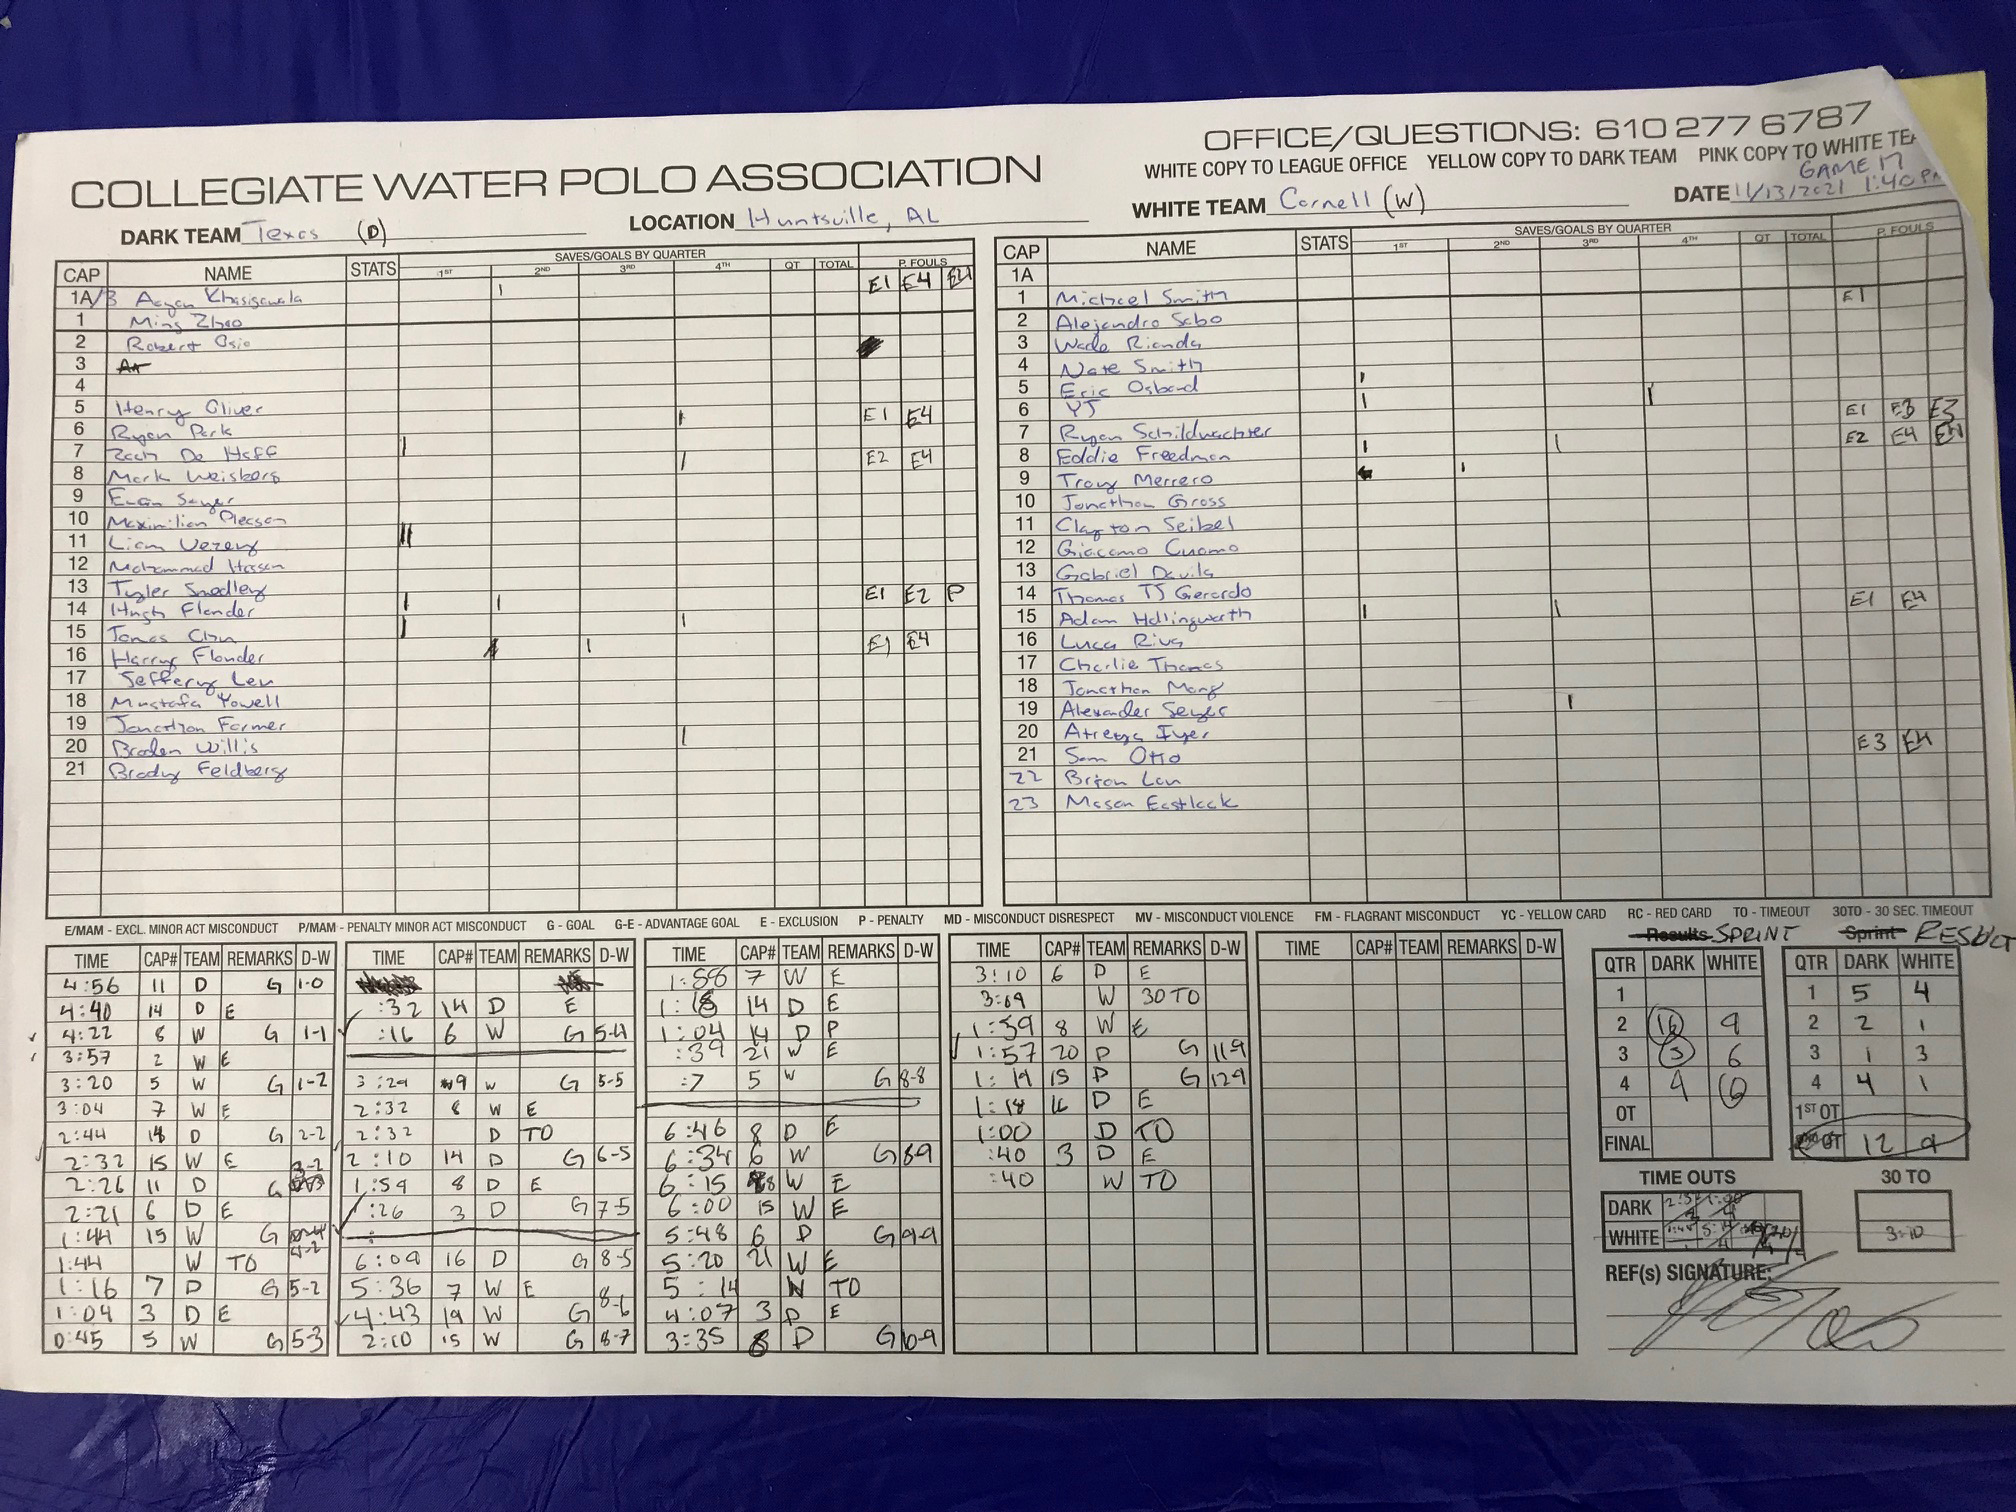 OFFICE/QUESTIONS: 610 277 6787
WHITE COPY TO LEAGUE OFFICE YELLOW COPY TO DARK TEAM PINK COPY TO WHITE TEA
COLLEGIATE WATER POLO ASSOCIATION
GAME 17
DARK TEAM Texas (D) LOCATION Huntsville, AL WHITE TEAM Cornell (W) DATE 11/13/2021 1:40 PM
CAP NAME STATS SAVES/GOALS BY QUARTER 1ST 2ND 3RD 4TH QT TOTAL P. FOULS
1A/3 Aayan Khasigawala E1 E4 E4
1 Ming Zhao
2 Robert Osio
3
4
5 Henry Oliver
6 Ryan Park E1 E4
7 Zach De Haff
8 Mark Weisberg E2 E4
9 Evan Sayer
10 Maximilian Pleason
11 Liam Verey
12 Mohammad Hassan
13 Tyler Smedley
14 Hugh Flander E1 E2 P
15 Jonas Chu
16 Harry Flander E1 E4
17 Jeffery Leu
18 Mustafa Yowell
19 Jonathan Farmer
20 Braden Willis
21 Brady Feldberg
CAP NAME STATS SAVES/GOALS BY QUARTER 1ST 2ND 3RD 4TH QT TOTAL P. FOULS
1A
1 Michael Smith
2 Alejandro Sabo E1
3 Wade Rionda
4 Nate Smith
5 Eric Osbord
6 YJ
7 Ryan Schildwachter E1 E3 E3
8 Eddie Freedman E2 E4 E4
9 Troy Merrero
10 Jonathan Gross
11 Clayton Seibel
12 Giacomo Cuomo
13 Gabriel Davila
14 Thomas TJ Gerardo
15 Adam Hollingworth E1 E4
16 Luca Riva
17 Charlie Thomas
18 Jonathan Mang
19 Alexander Seyer
20 Atreya Iyer
21 Sam Otto E3 E4
22 Brian Lan
23 Mason Eastlack
E/MAM - EXCL. MINOR ACT MISCONDUCT P/MAM - PENALTY MINOR ACT MISCONDUCT G - GOAL G-E - ADVANTAGE GOAL E - EXCLUSION P - PENALTY MD - MISCONDUCT DISRESPECT MV - MISCONDUCT VIOLENCE FM - FLAGRANT MISCONDUCT YC - YELLOW CARD RC - RED CARD TO - TIMEOUT 30TO - 30 SEC. TIMEOUT
TIME CAP# TEAM REMARKS D-W
4:56 11 D G 1-0
4:40 14 D E
4:22 8 W G 1-1
3:57 2 W E
3:20 5 W G 1-2
3:04 7 W E
2:44 14 D G 2-2
2:32 15 W E
2:26 11 D G 3-2
2:21 6 D E
1:44 15 W G 4-2
1:44 W TO
1:16 7 D G 5-2
1:04 3 D E
0:45 5 W G 5-3
TIME CAP# TEAM REMARKS D-W
:32 14 D E
:16 6 W G 5-4
3:29 9 W G 5-5
2:32 8 W E
2:32 D TO
2:10 14 D G 6-5
1:59 8 D E
:26 3 D G 7-5
6:09 16 D G 8-5
5:36 7 W E
4:43 19 W G 8-6
2:10 15 W G 8-7
TIME CAP# TEAM REMARKS D-W
1:88 7 W E
1:18 14 D E
1:04 14 D P
:39 21 W E
:7 5 W G 8-8
6:46 8 D E
6:34 6 W G 8-9
6:15 8 W E
6:00 15 W E
5:48 6 D G 9-9
5:20 21 W E
5:14 W TO
4:07 3 D E
3:35 8 D G 10-9
TIME CAP# TEAM REMARKS D-W
3:10 6 D E
3:09 W 30TO
1:59 8 W E
1:57 20 D G 11-9
1:19 15 D G 12-9
1:18 16 D E
1:00 D TO
:40 3 D E
:40 W TO
TIME CAP# TEAM REMARKS D-W
Results SPRINT
QTR DARK WHITE
1
2 16 9
3 3 6
4 9 6
OT
FINAL
Sprint RESULT
QTR DARK WHITE
1 5 4
2 2 1
3 1 3
4 4 1
1ST OT
12 9
TIME OUTS
DARK
WHITE
30 TO
3:10
REF(s) SIGNATURE: